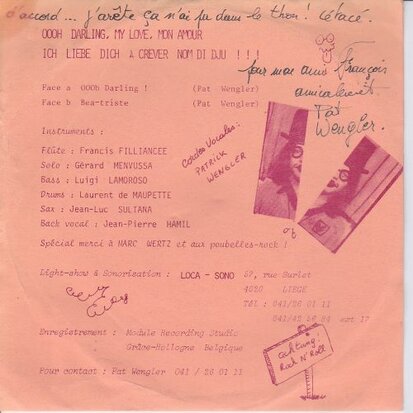 d'accord... j'arête ça n'ai pa dum le thon! Céfacé.
OOOH DARLING, MY LOVE, MON AMOUR
ICH LIEBE DICH A CREVER NOM DI DJU ! ! !
pour mon ami François
amicalement
Pat
Wengler.
Face a OOOh Darling ! (Pat Wengler)
Face b Bea-triste (Pat Wengler)
Instruments :
Cordes Vocales:
PATRICK
WENGLER
Flûte : Francis FILLIANCEE
Solo : Gérard MENVUSSA
Bass : Luigi LAMOROSO
Drums : Laurent de MAUPETTE
Sax : Jean-Luc SULTANA
Back vocal : Jean-Pierre HAMIL
Spécial merci à MARC WERTZ et aux poubelles-rock !
Light-show & Sonorisation : LOCA - SONO 57, rue Surlet
4020 LIEGE
Tél : 041/26 01 11
041/42 56 84 ext 17
Enregistrement : Module Recording Studio
Grâce-Hollogne Belgique
Pour contact : Pat Wengler 041 / 26 01 11
achtung!
Rock N' Roll